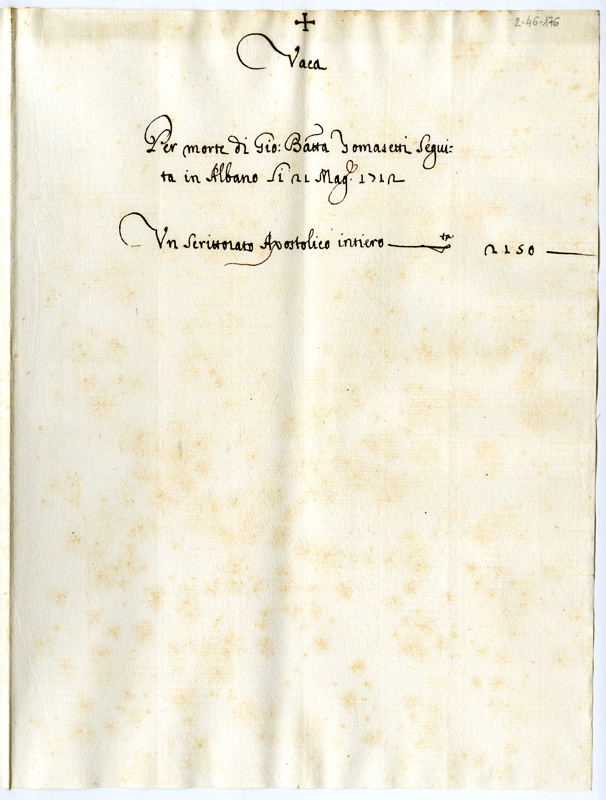 2-46-176
Vaca
Per morte di Gio: Batta Tomasetti Segui:
ta in Albano li 21 Magg.º 1712
Un Scrittorato Apostolico intiero 2150